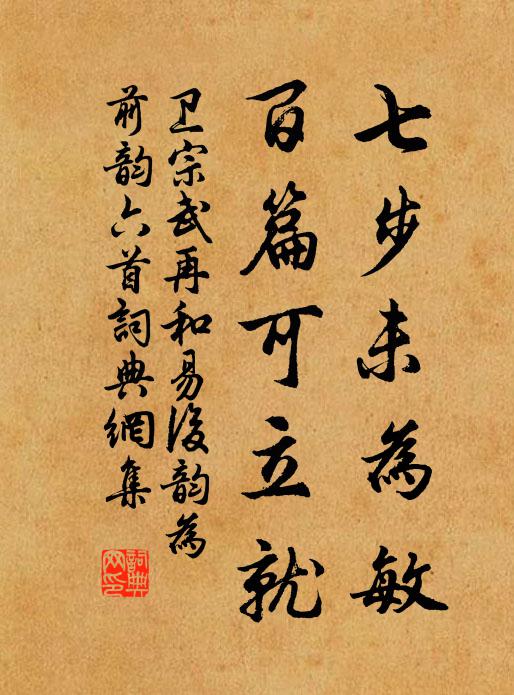 七步未為敏
百篇可立就
卫宗武再和易后韵為
前韵六首詞典網集
詞典
网印